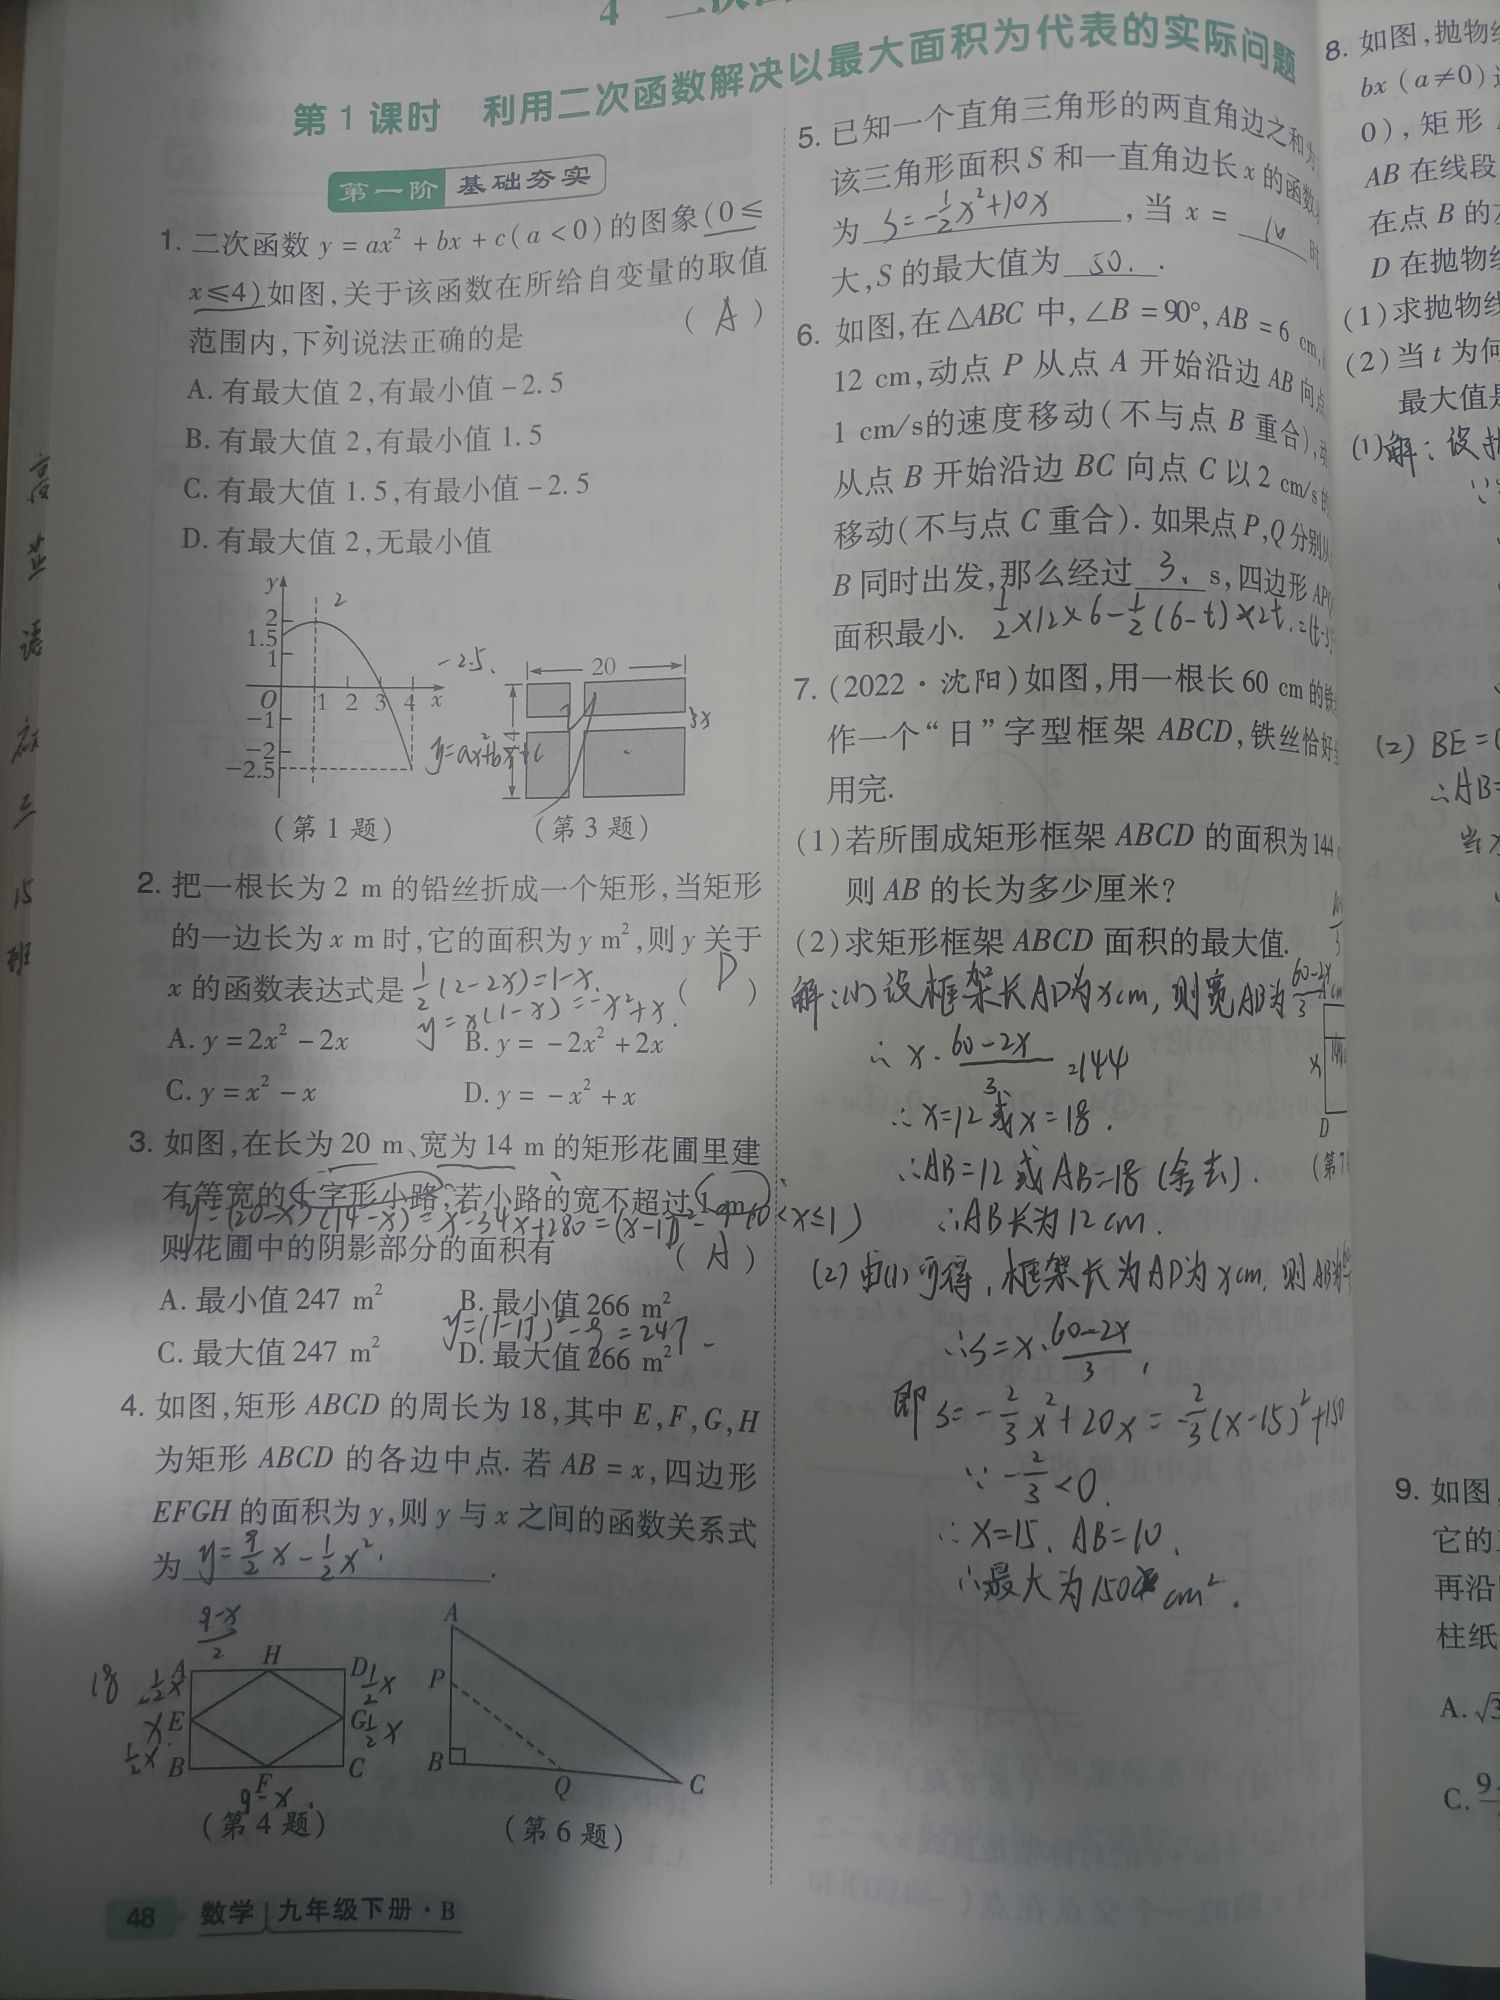 4
第1课时 利用二次函数解决以最大面积为代表的实际问题
第一阶 基础夯实
1. 二次函数 y = ax² + bx + c(a < 0)的图象(0 ≤
x ≤ 4)如图,关于该函数在所给自变量的取值
范围内,下列说法正确的是 ( A )
A. 有最大值 2,有最小值 -2.5
B. 有最大值 2,有最小值 1.5
C. 有最大值 1.5,有最小值 -2.5
D. 有最大值 2,无最小值
y
2
2
1.5
1
O
1 2 3 4 x
-1
-2
-2.5
-2.5
20
y=ax²+bx+c
(第1题)
(第3题)
2. 把一根长为 2 m 的铅丝折成一个矩形,当矩形
的一边长为 x m 时,它的面积为 y m²,则 y 关于
x 的函数表达式是 ( D )
½(2-2x)=1-x.
y=x(1-x)=-x²+x.
A. y = 2x² - 2x B. y = -2x² + 2x
C. y = x² - x D. y = -x² + x
3. 如图,在长为 20 m、宽为 14 m 的矩形花圃里建
有等宽的十字形小路,若小路的宽不超过 1 m,
y=(20-x)(14-x)=x²-34x+280=(x-17)²-9
则花圃中的阴影部分的面积有 ( A )
A. 最小值 247 m² B. 最小值 266 m²
C. 最大值 247 m² D. 最大值 266 m²
y=(1-17)²-9=247
4. 如图,矩形 ABCD 的周长为 18,其中 E,F,G,H
为矩形 ABCD 的各边中点. 若 AB = x,四边形
EFGH 的面积为 y,则 y 与 x 之间的函数关系式
为 y=9/2x-½x².
(9-x)/2
A H D
18 ½x ½x
x E G ½x
½x B F C
9-x
(第4题)
A
P
B Q C
(第6题)
48 数学 九年级下册·B
5. 已知一个直角三角形的两直角边之和为
该三角形面积 S 和一直角边长 x 的函数
为 S=-½x²+10x ,当 x = 10 时
大,S 的最大值为 50. .
6. 如图,在 △ABC 中,∠B = 90°,AB = 6 cm,
12 cm,动点 P 从点 A 开始沿边 AB 向点
1 cm/s的速度移动(不与点 B 重合),动
从点 B 开始沿边 BC 向点 C 以 2 cm/s 的
移动(不与点 C 重合). 如果点 P,Q 分别从
B 同时出发,那么经过 3. s,四边形 APQ
面积最小. ½×12×6-½(6-t)×2t.=(t-3)
7. (2022·沈阳)如图,用一根长 60 cm 的铁
作一个“日”字型框架 ABCD,铁丝恰好
用完.
(1)若所围成矩形框架 ABCD 的面积为 144
则 AB 的长为多少厘米?
(2)求矩形框架 ABCD 面积的最大值.
解:(1)设框架长AD为xcm,则宽AB为(60-2x)/3 cm
∴x·(60-2x)/3=144
∴x=12或x=18.
∴AB=12或AB=18(舍去).
∴AB长为12cm.
x
D
(第7
(2)由(1)可得,框架长为AD为xcm,则AB为
∴S=x·(60-2x)/3,
即S=-2/3x²+20x=-2/3(x-15)²+150
∵-2/3<0.
∴x=15,AB=10.
∴最大为150cm².
8. 如图,抛物线
bx (a≠0)
0),矩形
AB 在线段
在点 B 的左
D 在抛物线
(1)求抛物线
(2)当 t 为何
最大值是
(1)解:设抛
(2) BE=
∴AB=
9. 如图,
它的
再沿
柱纸
A.
C.